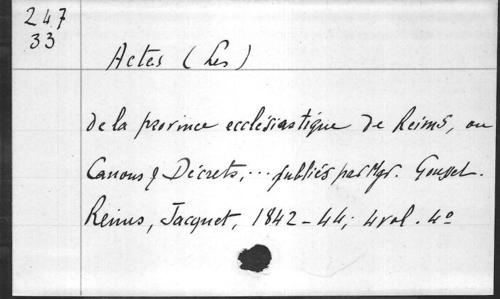 247
33
Actes (Les)
de la province ecclésiastique de Reims, ou
Canons & Décrets, ... publiés par Mgr. Gousset.
Reims, Jacquet, 1842-44; 4 vol. 4°